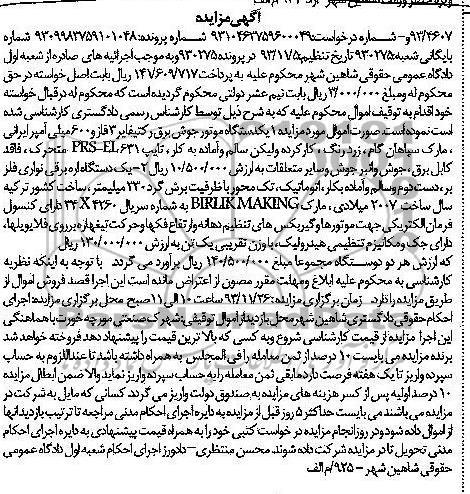 آگهی مزایده
۹۳/۴۶۰۷و- شماره درخواست:۹۳۱۰۴۶۳۷۵۹۶۰۰۰۴۹ شماره پرونده:۹۳۰۹۹۸۳۷۵۹۱۰۱۰۴۸ شماره
بایگانی شعبه:۹۳۰۲۷۵ تاریخ تنظیم: ۹۳/۱۱/۵ در پرونده۹۳۰۲۷۵و به موجب اجرائیه های صادره از شعبه اول
دادگاه عمومی حقوقی شاهین شهر محکوم علیه به پرداخت۱۴۷/۶۰۹/۷۱۷ ریال بابت اصل خواسته در حق
محکوم له ومبلغ ۲/۰۰۰/۰۰۰ ریال بابت نیم عشر دولتی محکوم گردیده است که محکوم له در قبال خواسته
خود اقدام به توقیف اموال محکوم علیه که به شرح ذیل توسط کارشناس رسمی دادگستری کارشناسی شده
است نموده است. صورت اموال مورد مزایده ۱-یکدستگاه موتور جوش برق رکتیفایر ۳فاز و ۶۰۰میلی آمپر ایرانی
، مارک سپاهان گام ، زرد رنگ ، کار کرده ولیکن سالم وآماده به کار ، تایپ PRS-EL۶۳۱ متحرک ، فاقد
کابل برق ،جوش وانبر جوش وسایر متعلقات به ارزش ۱۰/۵۰۰/۰۰۰ ریال ۲- یک دستگاه اره برقی نواری فلز
بر ،دست دوم وسالم وآماده بکار ،اتوماتیک ، تک محور با ظرفیت برش گرد ۲۲۰ میلیمتر ، ساخت کشور ترکیه
سال ساخت ۲۰۰۷ میلادی ، مارک BIRLIK MAKING به شماره سریال ۴۲۶۰ X ۳۴ دارای کنسول
فرمان الکتریکی جهت موتورها و گیربکس های تنظیم دهانه وارتفاع فکها وحرکت تیغه اره بر روی فلایویلها،
دارای جک ومکانیزم تنظیمی هیدرولیک، با وزن تقریبی یک تن به ارزش ۱۳۰/۰۰۰/۰۰۰ ریال
که ارزش هر دو دوستگاه مجموعا مبلغ ۱۴۰/۵۰۰/۰۰۰ ریال برآورد می گردد با توجه به اینکه نظریه
کارشناسی به محکوم علیه ابلاغ ومهلت مقرر مصون از اعتراض مانده است این اجرا قصد فروش اموال از
طریق مزایده را دارد زمان برگزاری مزایده: ۹۳/۱۱/۲۶ ساعت ۱۰ الی ۱۱ صبح محل برگزاری مزایده: اجرای
احکام حقوقی دادگستری شاهین شهر محل بازدید از اموال توقیفی :شهرک صنعتی مورچه خورت با هماهنگی
این اجرا مزایده از قیمت کارشناسی شروع وبه کسی که بالاترین قیمت را پیشنهاد دهد فروخته خواهد شد
برنده مزایده می بایست ۱۰ درصد از ثمن معامله را فی المجلس به همراه داشته باشد تا عندالزوم به حساب
سپرده واریز تا یک هفته فرصت دارد مابقی ثمن معامله را به حساب سپرده واریز نماید والا ضمن ابطال مزایده
۱۰ درصد اولیه پس از کسر هزینه های مزایده به صندوق دولت واریز می گردد. کسانی که مایل به شرکت در
مزایده می باشند می بایست حداکثر ۵ روز قبل از مزایده به دایره اجرای احکام مدنی مراجعه تا ترتیب بازدید آنها
از اموال داده شود ودر روز انجام مزایده در خواست کتبی خود را به همراه قیمت پیشنهادی به دایره اجرای احکام
مدنی تحویل تا در مزایده شرکت داده شوند. محسن منتظری - دادورز اجرای احکام شعبه اول دادگاه عمومی
حقوقی شاهین شهر - ۹۲۵/م الف